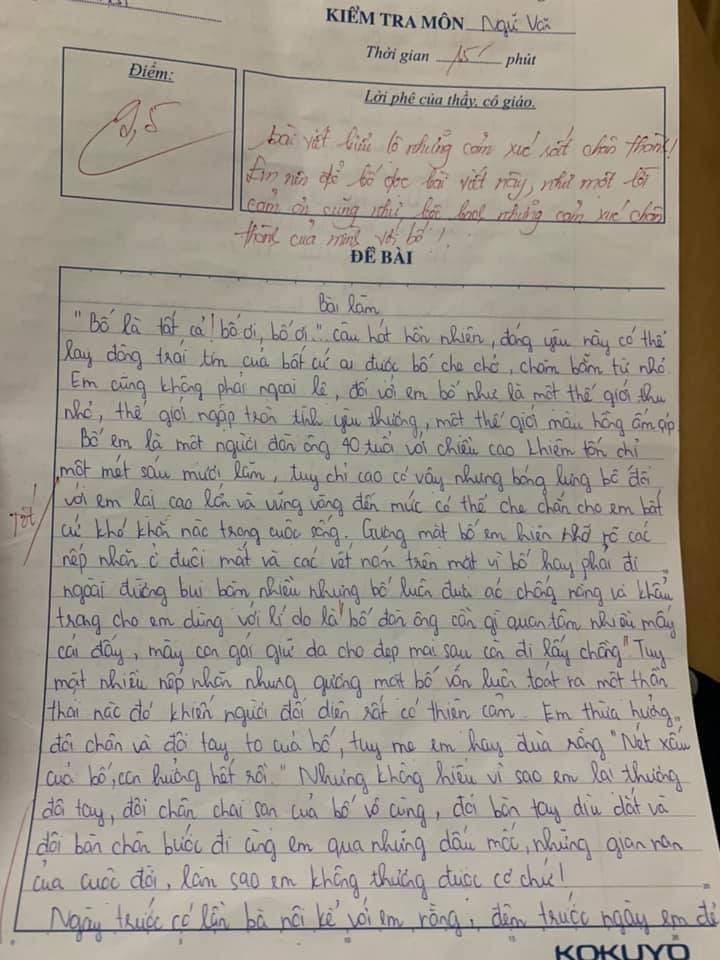 KIỂM TRA MÔN Ngữ Văn
Thời gian 15' phút
Điểm:
Lời phê của thầy, cô giáo.
bài viết biểu lộ những cảm xúc rất chân thành!
Em nên để bố đọc bài viết này, như một lời
cảm ơn cũng như bộc bạch những cảm xúc chân
thành của mình với bố!
ĐỀ BÀI
Bài làm
"Bố là tất cả! bố ơi, bố ơi.." câu hát hồn nhiên, đáng yêu này có thể
lay động trái tim của bất cứ ai được bố che chở, chăm bẵm từ nhỏ.
Em cũng không phải ngoại lệ, đối với em bố như là một thế giới thu
nhỏ, thế giới ngập tràn tình yêu thương, một thế giới màu hồng ấm áp
Bố em là một người đàn ông 40 tuổi với chiều cao khiêm tốn chỉ
một mét sáu mươi lăm, tuy chỉ cao có vậy nhưng bóng lưng bố đối
Tốt!
với em lại cao lớn và vững vàng đến mức có thể che chắn cho em bất
cứ khó khăn nào trong cuộc sống. Gương mặt bố em hiện rõ các
nếp nhăn ở đuôi mắt và các vết nám trên mặt vì bố hay phải đi
ngoài đường bụi bặm nhiều nhưng bố luôn đưa áo chống nắng và khẩu
trang cho em dùng với lí do là "bố đàn ông cần gì quan tâm nhiều mấy
cái đấy, mày con gái giữ da cho đẹp mai sau còn đi lấy chồng" Tuy
mặt nhiều nếp nhăn nhưng gương mặt bố vẫn luôn toát ra một thần
thái nào đó khiến người đối diện rất có thiện cảm. Em thừa hưởng
đôi chân và đôi tay to của bố, tuy mẹ em hay đùa rằng "Nét xấu
của bố, con hưởng hết rồi." Nhưng không hiểu vì sao em lại thương
đôi tay, đôi chân chai sạn của bố vô cùng, đôi bàn tay dìu dắt và
đôi bàn chân bước đi cùng em qua những dấu mốc, những gian nan
của cuộc đời, làm sao em không thương được cơ chứ!
Ngày trước có lần bà nội kể với em rằng, đêm trước ngày em đẻ
KOKUYO